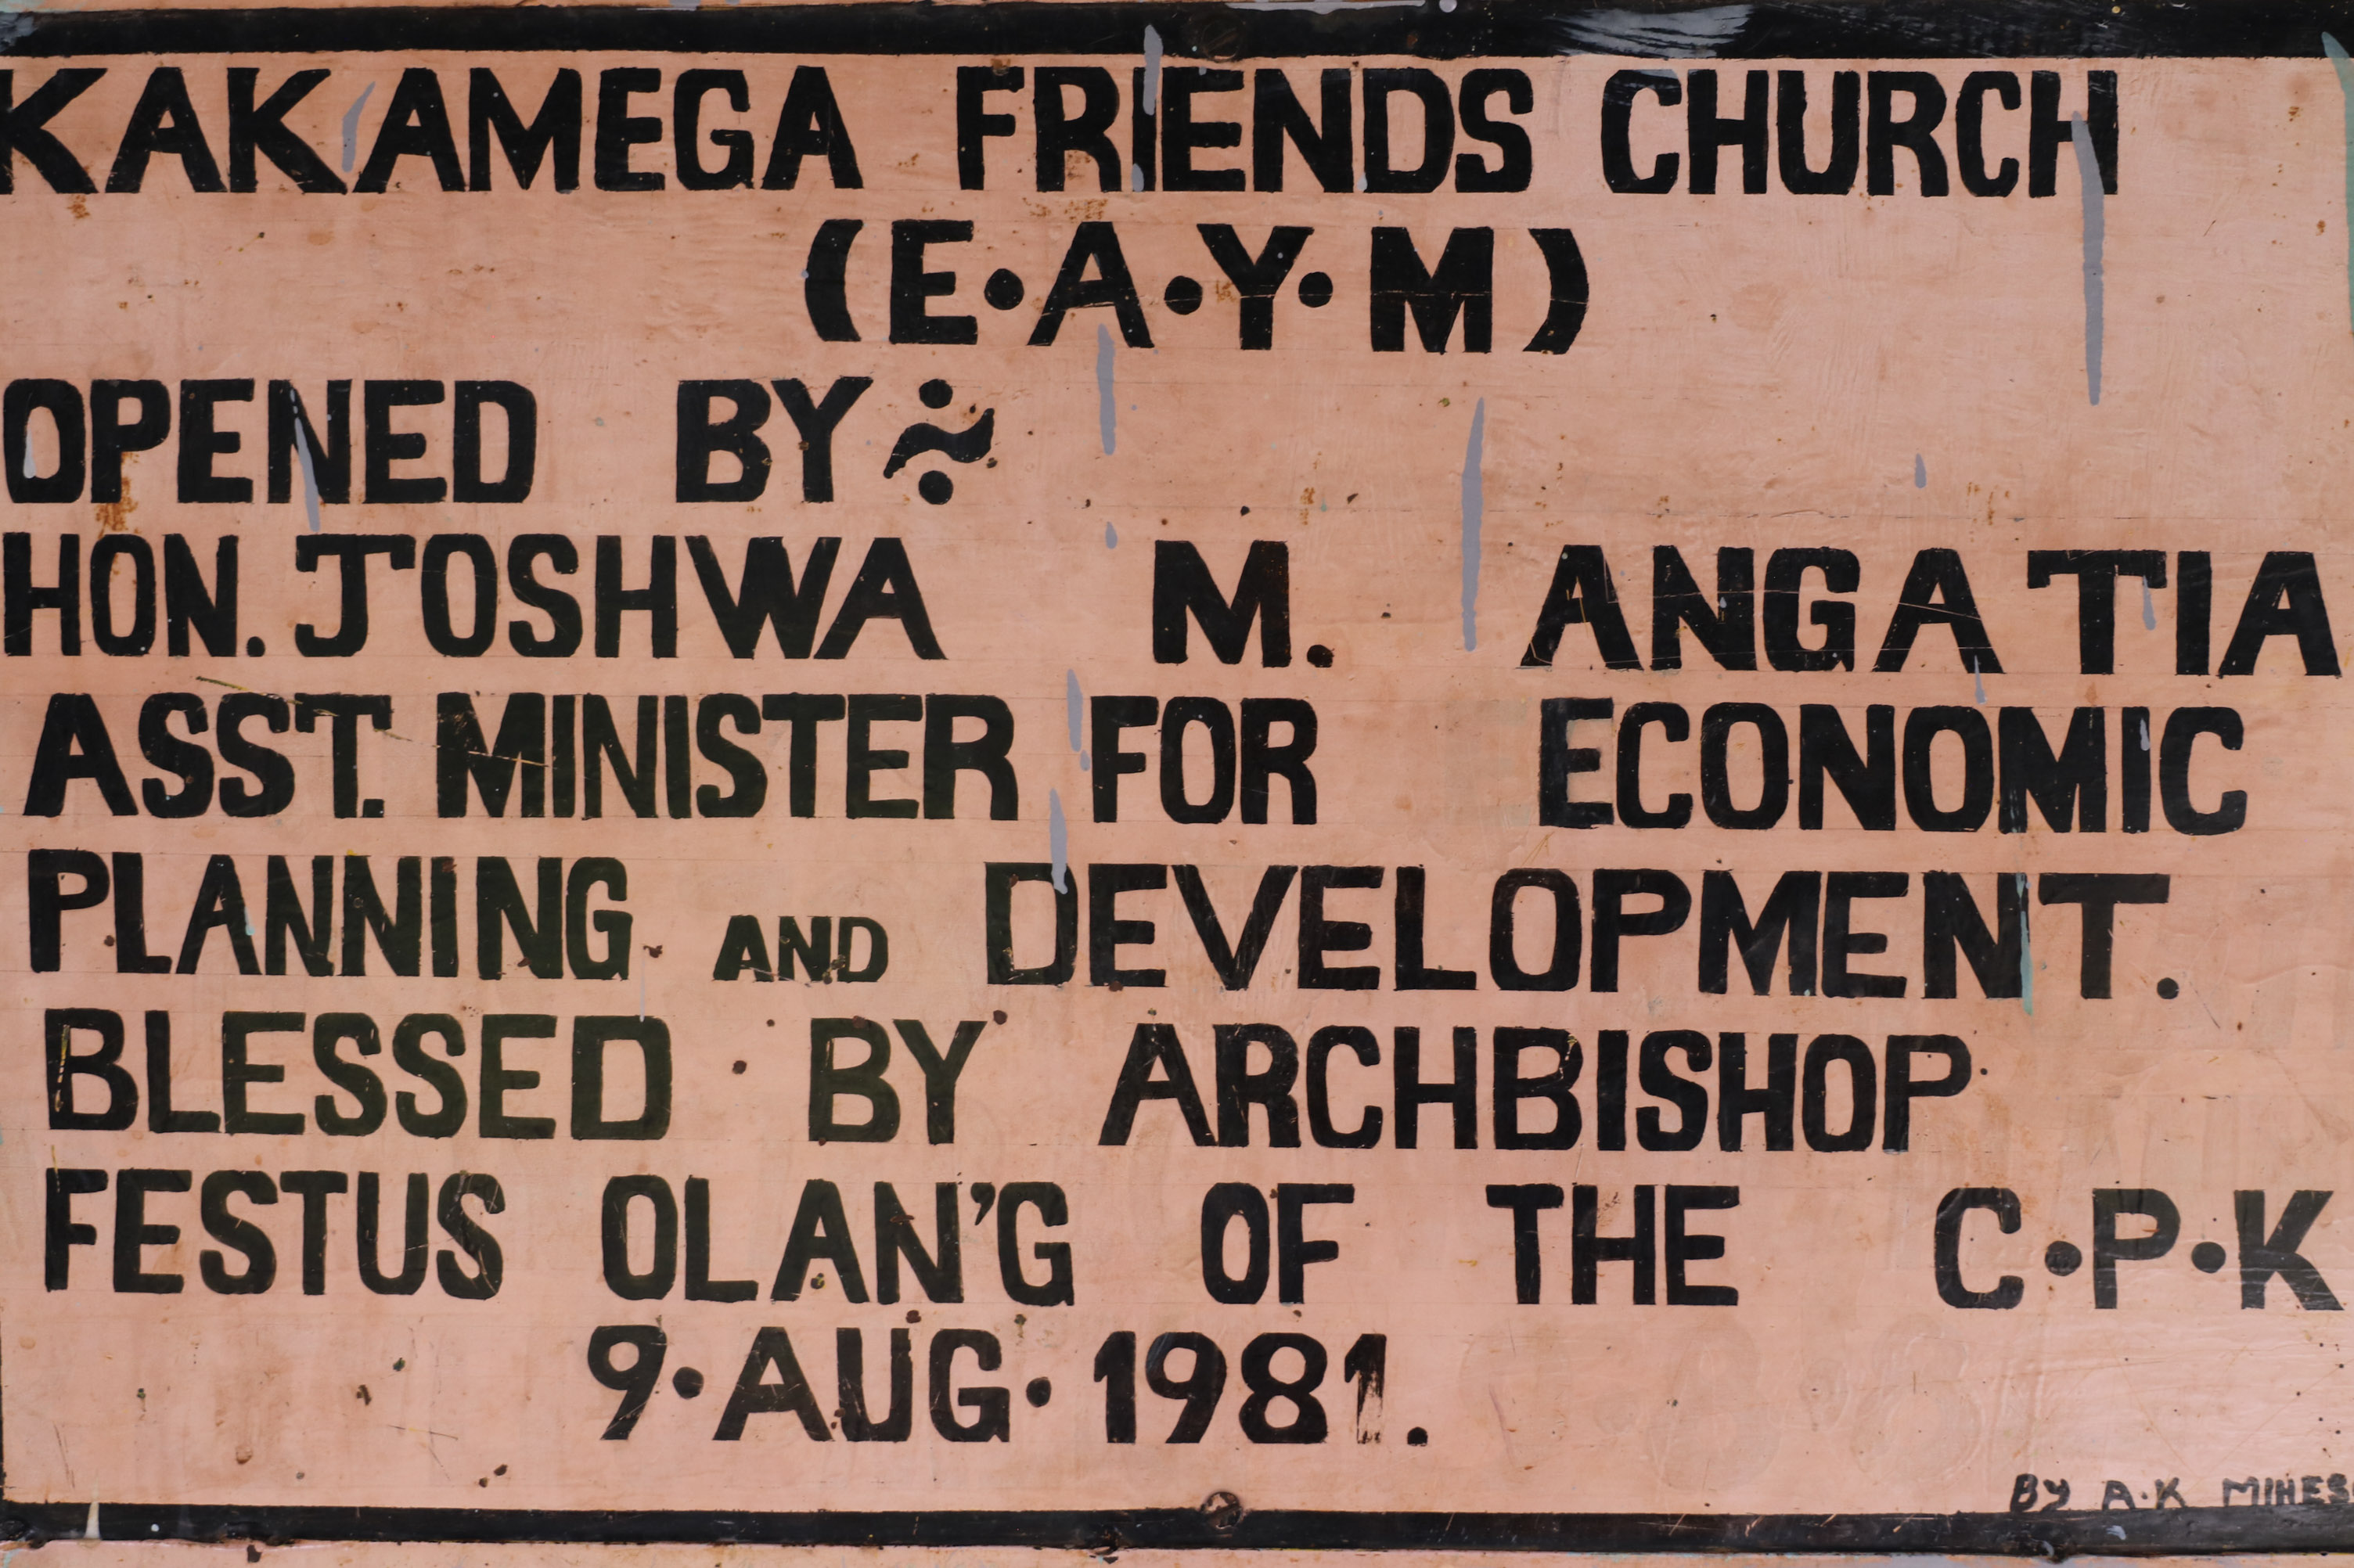 KAKAMEGA FRIENDS CHURCH
(E·A·Y·M)
OPENED BY ÷
HON. JOSHWA M. ANGATIA
ASST. MINISTER FOR ECONOMIC
PLANNING AND DEVELOPMENT.
BLESSED BY ARCHBISHOP
FESTUS OLAN'G OF THE C·P·K
9·AUG·1981.
BY A·K